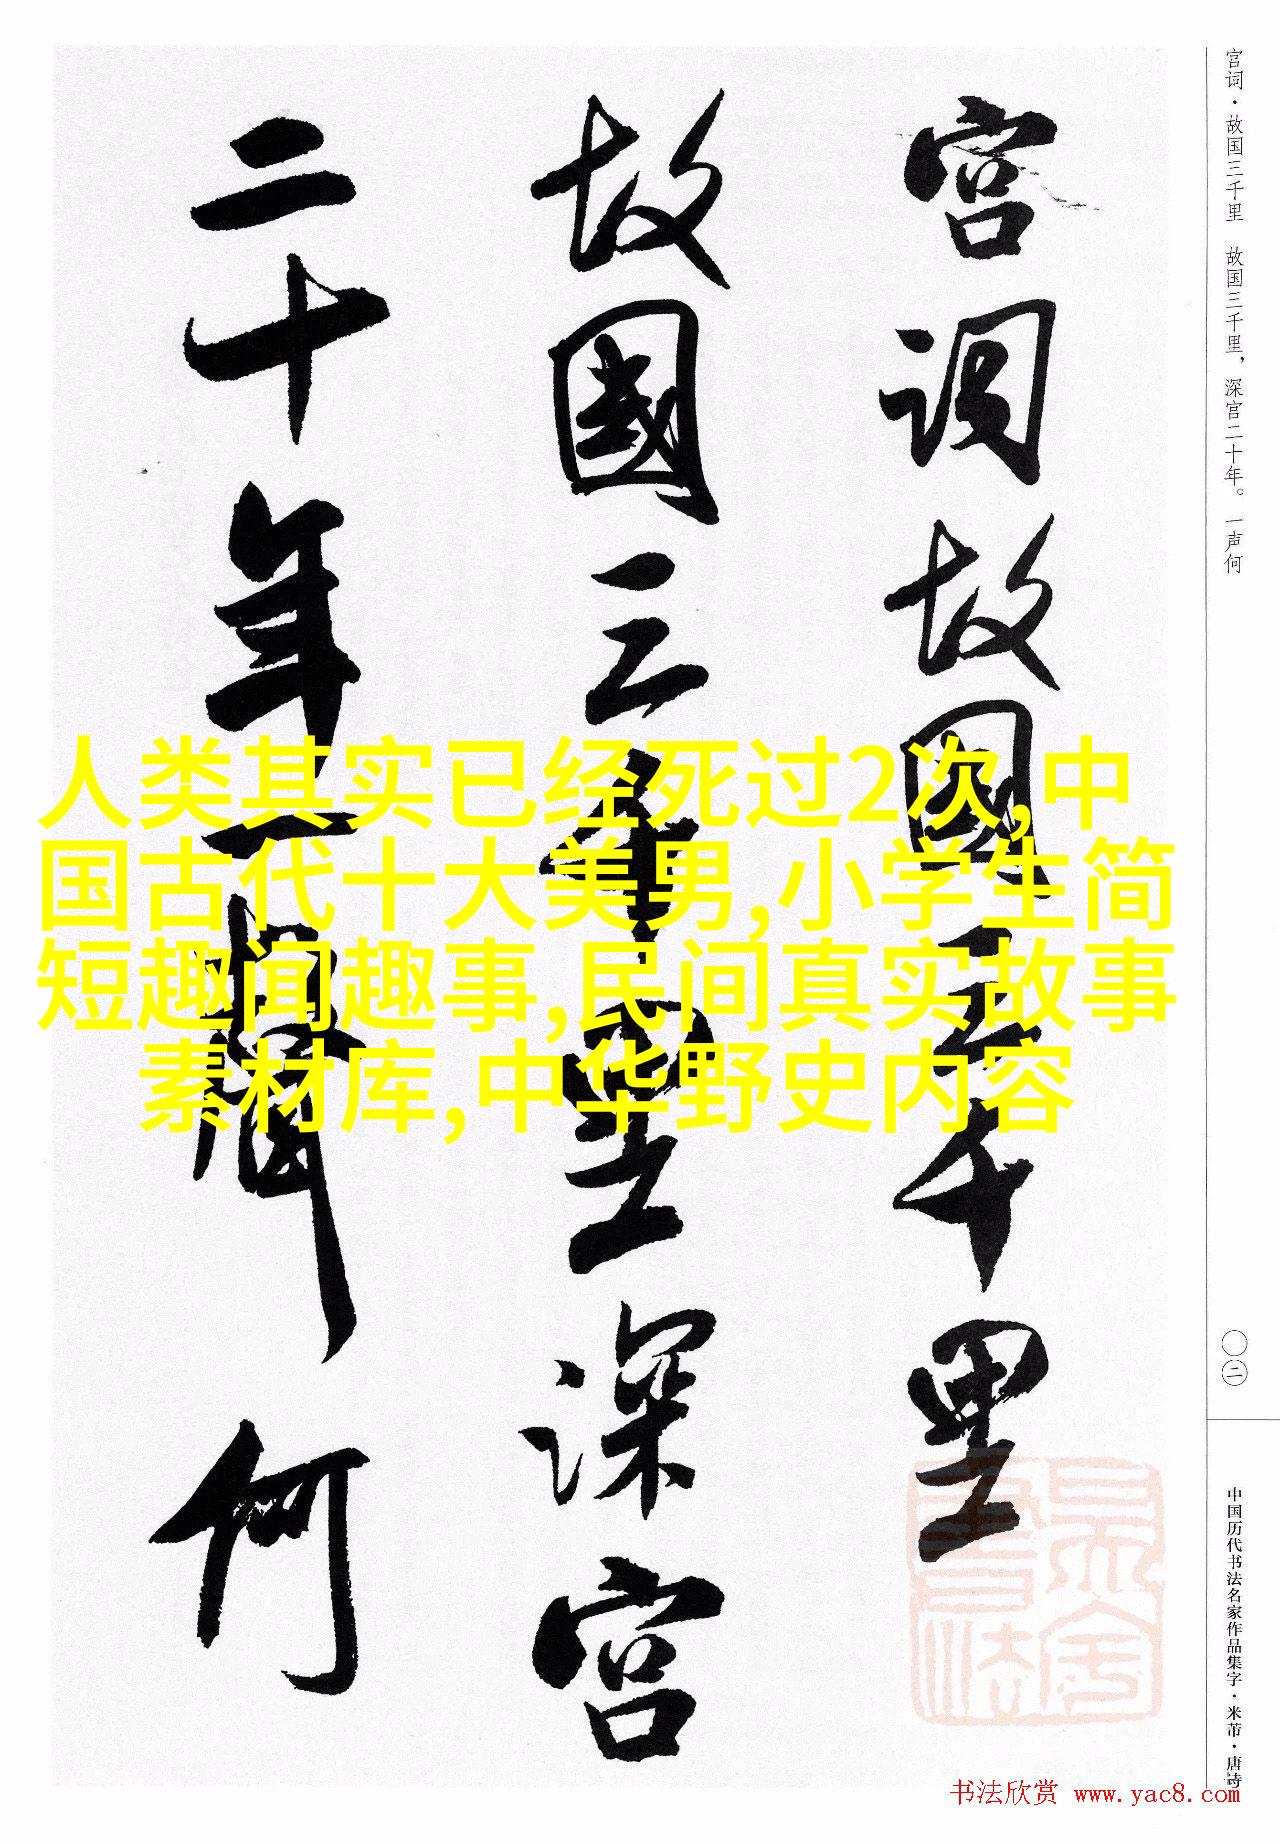 宫词·故国三千里 故国三千里，深宫二十年。一声何
宫词故國三千里
故國三千里深宫
二十年一聲何
人类其实已经死过2次,中
国古代十大美男,小学生简
短趣闻趣事,民间真实故事
素材库,中华野史内容
〇二
中国历代书法名家作品集字·米芾·唐诗
书法欣赏 www.yac8.com